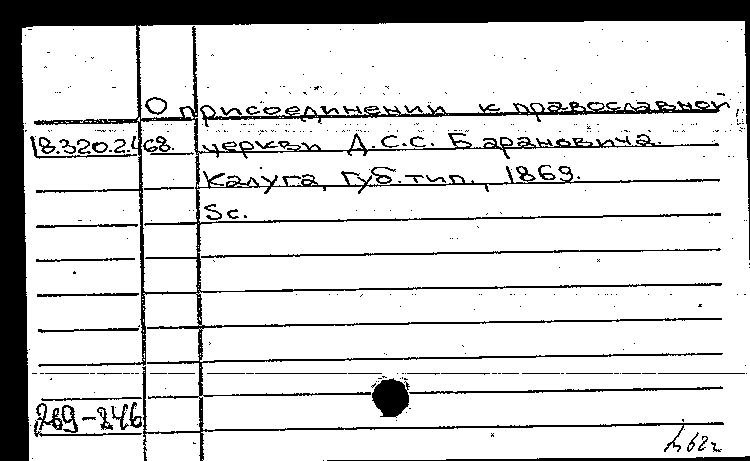 О присоединении к православной
18.320.2.168. церкви Д.С.С. Барановича.
Калуга, Губ. тип., 1869.
5с.
269-246